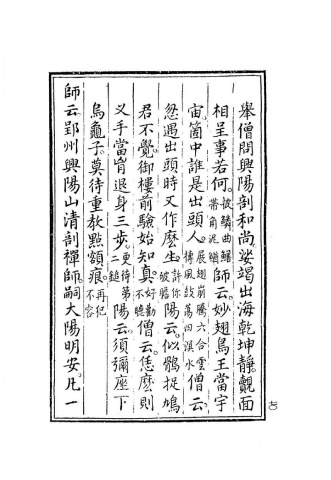 舉僧問興陽剖和尚娑竭出海乾坤靜覿面
相呈事若何披鱗曲鱔帶角泥鰍師云妙翅鳥王當宇
宙箇中誰是出頭人展翅崩騰六合雲搏風鼓蕩四溟水僧云
忽遇出頭時又作麼生計你破膽陽云似鶻捉鳩
君不覺御樓前驗始知真好勸不聽僧云恁麼則
叉手當胷退身三步更待第二鎚陽云須彌座下
烏龜子莫待重教點額痕再犯不容
師云郢州興陽山清剖禪師嗣大陽明安凡一